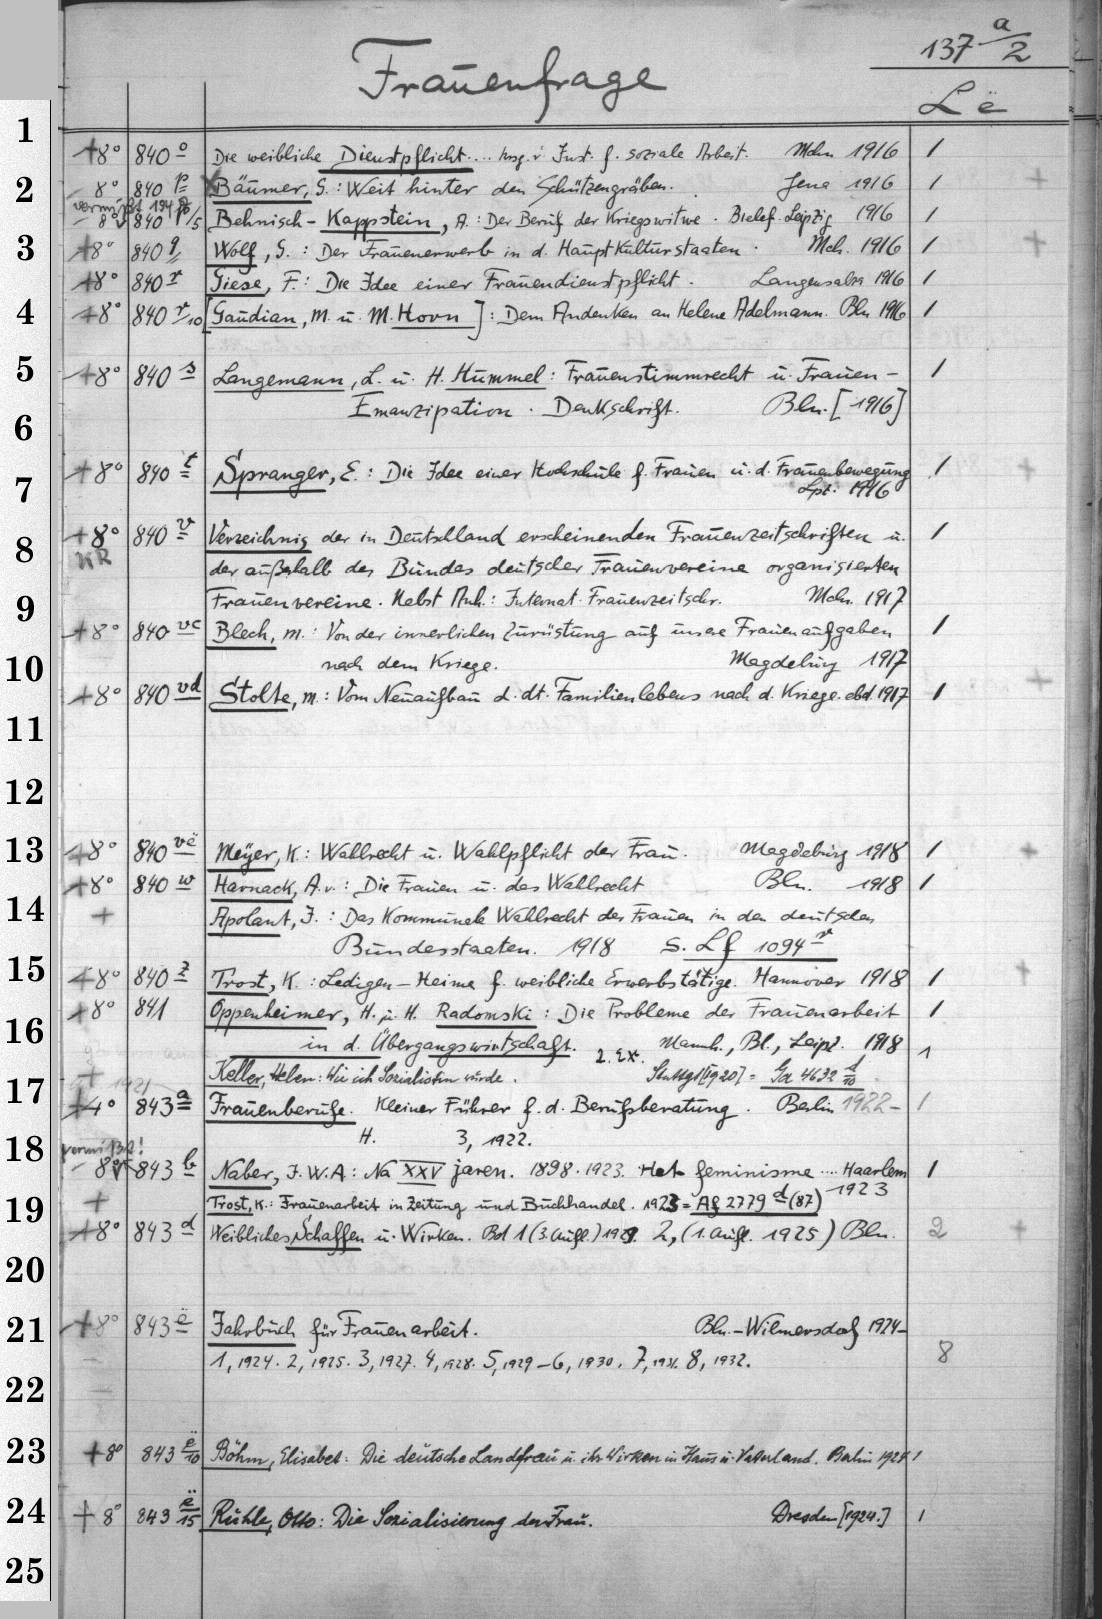 137 a/2
Frauenfrage
Lë
1
+8° 840 o Die weibliche Dienstpflicht.... hrsg. v. Inst. f. soziale Arbeit. Mchn 1916 1
2
8° 840 p Bäumer, G.: Weit hinter den Schützengräben. Jena 1916 1
vermißt 194
8° 840 p/5 Behnisch-Kappstein, A.: Der Beruf der Kriegswitwe. Bielef. Leipzig 1916 1
3
+8° 840 q Wolf, G.: Der Frauenerwerb in d. Hauptkulturstaaten. Mch. 1916 1
+8° 840 r Giese, F.: Die Idee einer Frauendienstpflicht. Langensalza 1916 1
4
+8° 840 r/10 [Gaudian, M. u. M. Horn]: Dem Andenken an Helene Adelmann. Bln 1916 1
5
+8° 840 s Langemann, L. u. H. Hummel: Frauenstimmrecht u. Frauen- 1
Emanzipation. Denkschrift. Bln. [1916]
6
+8° 840 t Spranger, E.: Die Idee einer Hochschule f. Frauen u. d. Frauenbewegung 1
7
Lpz. 1916
+8° 840 v Verzeichnis der in Deutschland erscheinenden Frauenzeitschriften u. 1
8
KR
der außerhalb des Bundes deutscher Frauenvereine organisierten
9
Frauenvereine. Nebst Anh.: Internat. Frauenzeitschr. Mchn. 1917
+8° 840 vc Blech, M.: Von der innerlichen Zurüstung auf unsere Frauenaufgaben 1
10
nach dem Kriege. Magdeburg 1917
+8° 840 vd Stolte, M.: Vom Neuaufbau d. dt. Familienlebens nach d. Kriege. ebd. 1917 1
11
12
13
+8° 840 vë Meyer, K.: Wahlrecht u. Wahlpflicht der Frau. Magdeburg 1918 1
+8° 840 w Harnack, A. v.: Die Frauen u. das Wahlrecht Bln. 1918 1
14
+ Apolant, J.: Das Kommunale Wahlrecht der Frauen in den deutschen
Bundesstaaten. 1918 s. Lf 1094 r
15
+8° 840 z Trost, K.: Ledigen-Heime f. weibliche Erwerbstätige. Hannover 1918 1
+8° 841 Oppenheimer, H. u. H. Radomski: Die Probleme der Frauenarbeit 1
16
in d. Übergangswirtschaft. 2. Ex. Mannh., Bl., Leipz. 1918 1
+ Keller, Helen: Wie ich Sozialistin wurde. Stuttgt [1920] = Ga 4632 d/10
17
+4° 843 a Frauenberufe. Kleiner Führer f. d. Berufsberatung. Berlin 1922- 1
H. 3, 1922.
18
vermißt!
8° 843 b Naber, J. W. A: Na XXV jaren. 1898-1923. Het feminisme .... Haarlem 1
1923
19
+ Trost, K.: Frauenarbeit in Zeitung und Buchhandel. 1923 = Af 2779 d (87)
+8° 843 d Weibliches Schaffen u. Wirken. Bd 1 (3. Aufl.) 2, (1. Aufl. 1925) Bln. 2
20
21
+8° 843 ë Jahrbuch für Frauenarbeit. Bln.-Wilmersdorf 1924-
1, 1924. 2, 1925. 3, 1927. 4, 1928. 5, 1929-6, 1930. 7, 1931. 8, 1932. 8
22
23
+8° 843 ë/10 Böhm, Elisabet: Die deutsche Landfrau u. ihr Wirken in Haus u. Vaterland. Berlin 1924 1
24
+8° 843 ë/15 Rühle, Otto: Die Sozialisierung der Frau. Dresden [1924.] 1
25